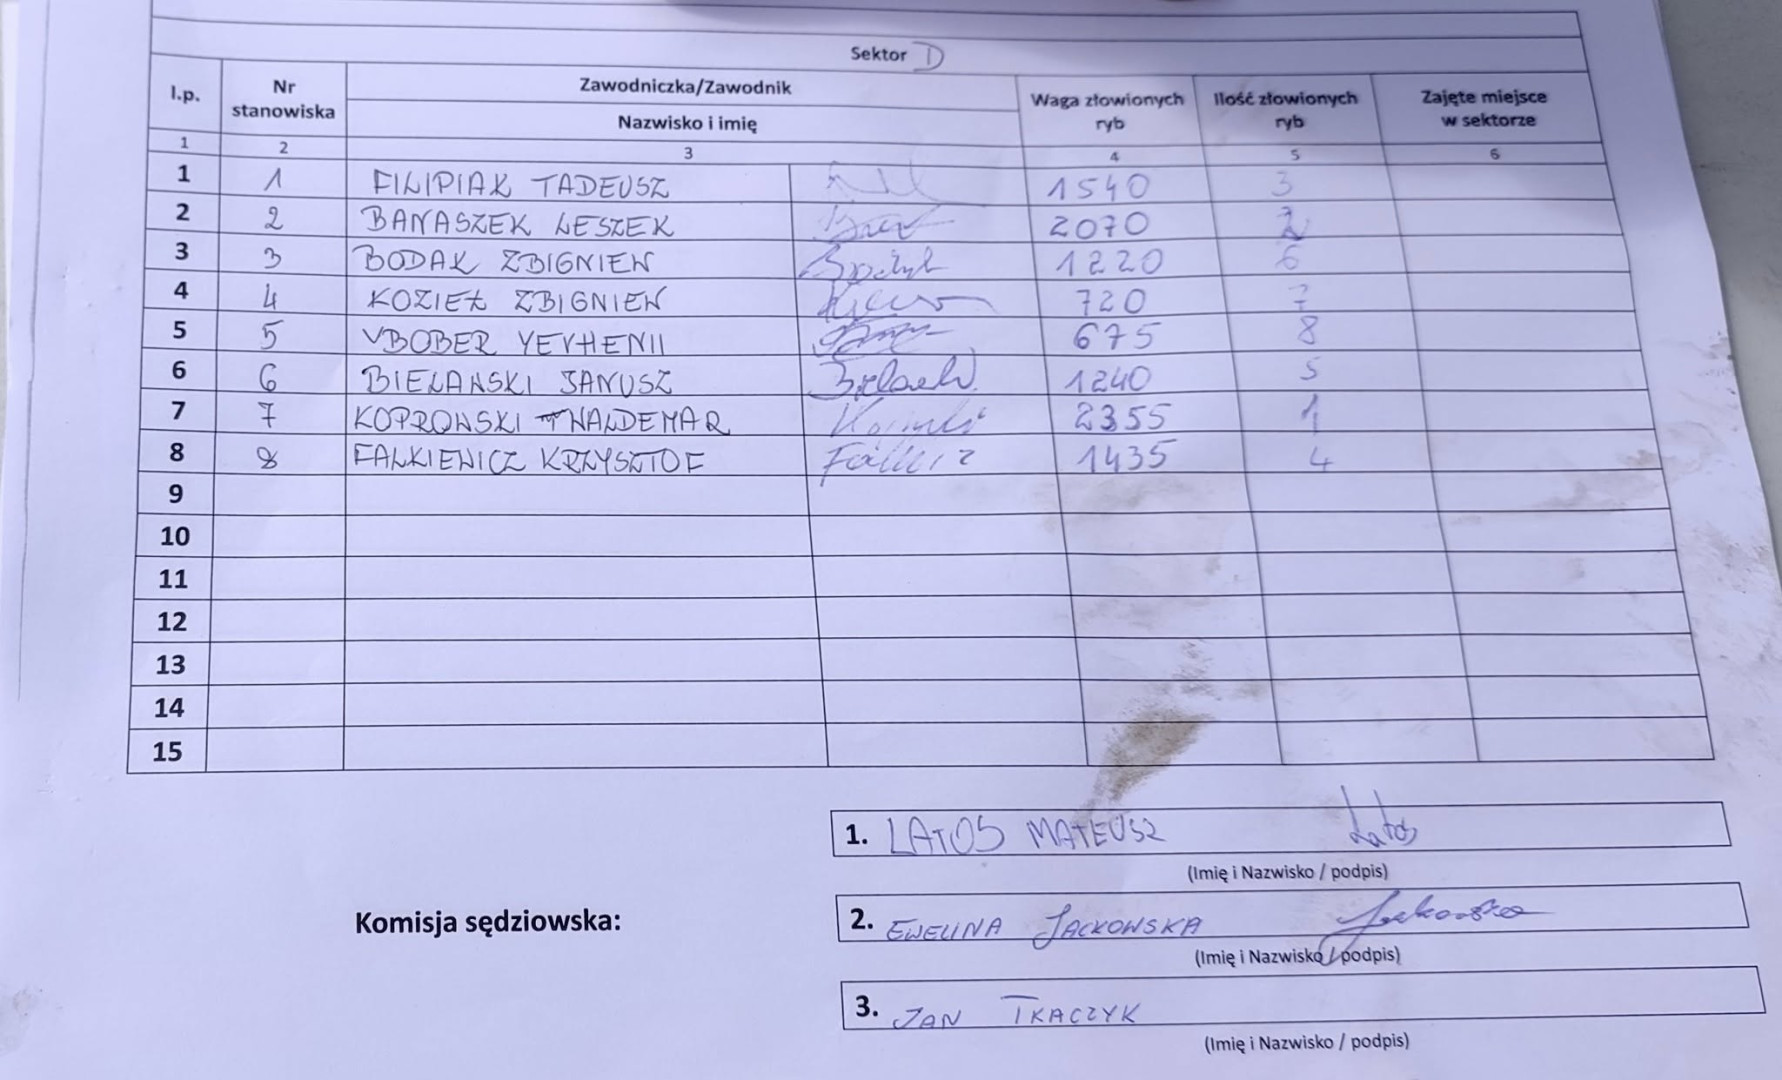 Sektor D
l.p. Nr stanowiska Zawodniczka/Zawodnik Nazwisko i imię Waga złowionych ryb Ilość złowionych ryb Zajęte miejsce w sektorze
1 2 3 4 5 6
1 1 FILIPIAK TADEUSZ 1540 3
2 2 BANASZEK LESZEK 2070 2
3 3 BODAK ZBIGNIEW 1220 6
4 4 KOZIEŁ ZBIGNIEW 720 7
5 5 BOBER YEVHENII 675 8
6 6 BIELAŃSKI JANUSZ 1240 5
7 7 KOPROWSKI WALDEMAR 2355 1
8 8 FALKIEWICZ KRZYSZTOF 1435 4
9
10
11
12
13
14
15
1. LATOS MATEUSZ Latos
(Imię i Nazwisko / podpis)
Komisja sędziowska:
2. EWELINA JACKOWSKA Jackowska
(Imię i Nazwisko / podpis)
3. JAN TKACZYK
(Imię i Nazwisko / podpis)